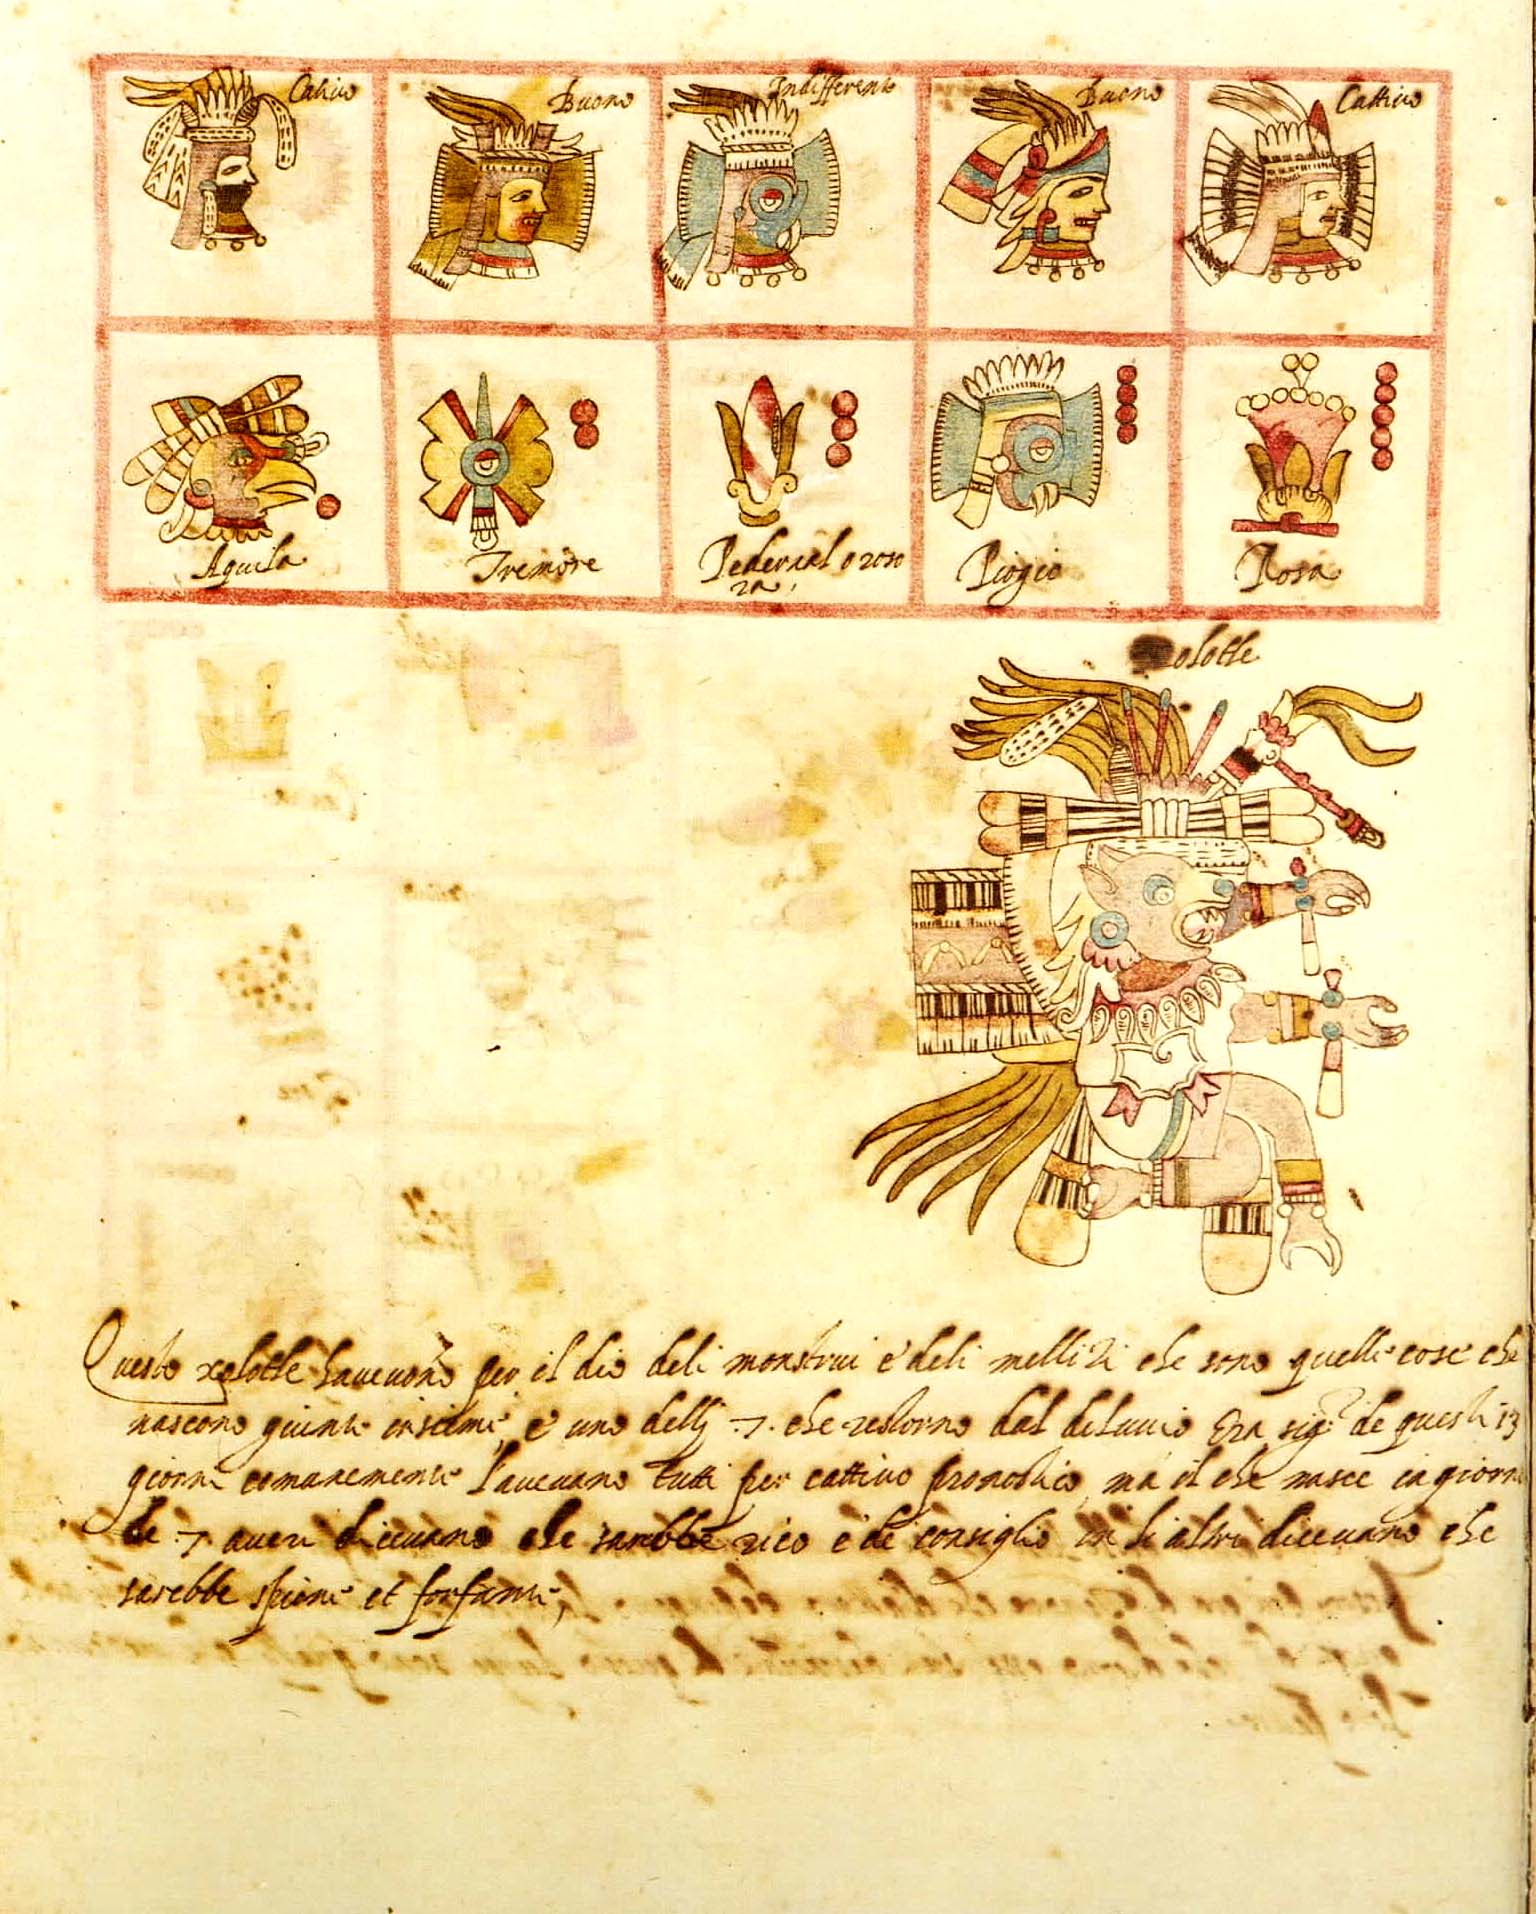 Cativo Buono Indifferente Buono Cattivo
Aquila Tremore Pedernal o roso Piogie Rosa
za,
olotle
Questo xolotle havevono per il dio deli monstrui e deli mellizi che sono quelle cose che
nascono giunte insieme, e uno delli .7. che restorno dal deluvio Era sigr de questi 13
giorni comunemente l'avevano tutti per cattivo pronostico ma il che nasce in giorni
de .7. dicevano che sarebbe rico e de consiglio in li altri dicevano che
sarebbe spione et forfante,